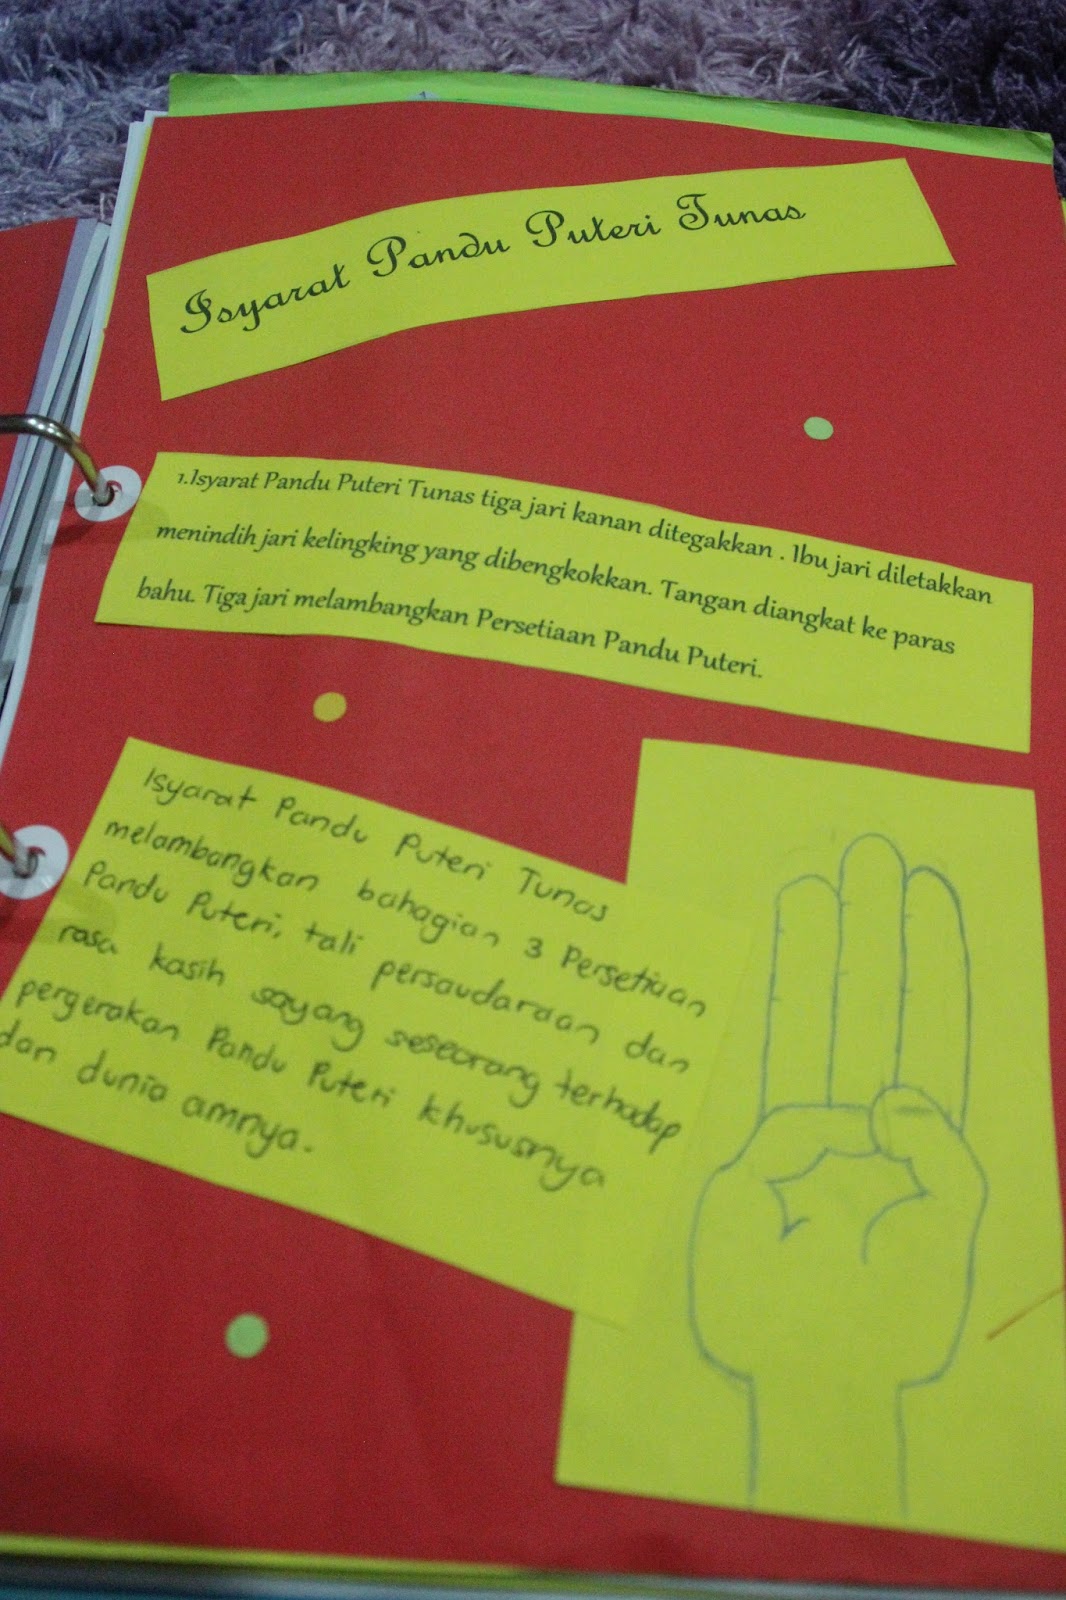 Isyarat Pandu Puteri Tunas
1.Isyarat Pandu Puteri Tunas tiga jari kanan ditegakkan . Ibu jari diletakkan
menindih jari kelingking yang dibengkokkan. Tangan diangkat ke paras
bahu. Tiga jari melambangkan Persetiaan Pandu Puteri.
Isyarat Pandu Puteri Tunas
melambangkan bahagian 3 Persetiaan
Pandu Puteri, tali persaudaraan dan
rasa kasih sayang seseorang terhadap
pergerakan Pandu Puteri khususnya
dan dunia amnya.